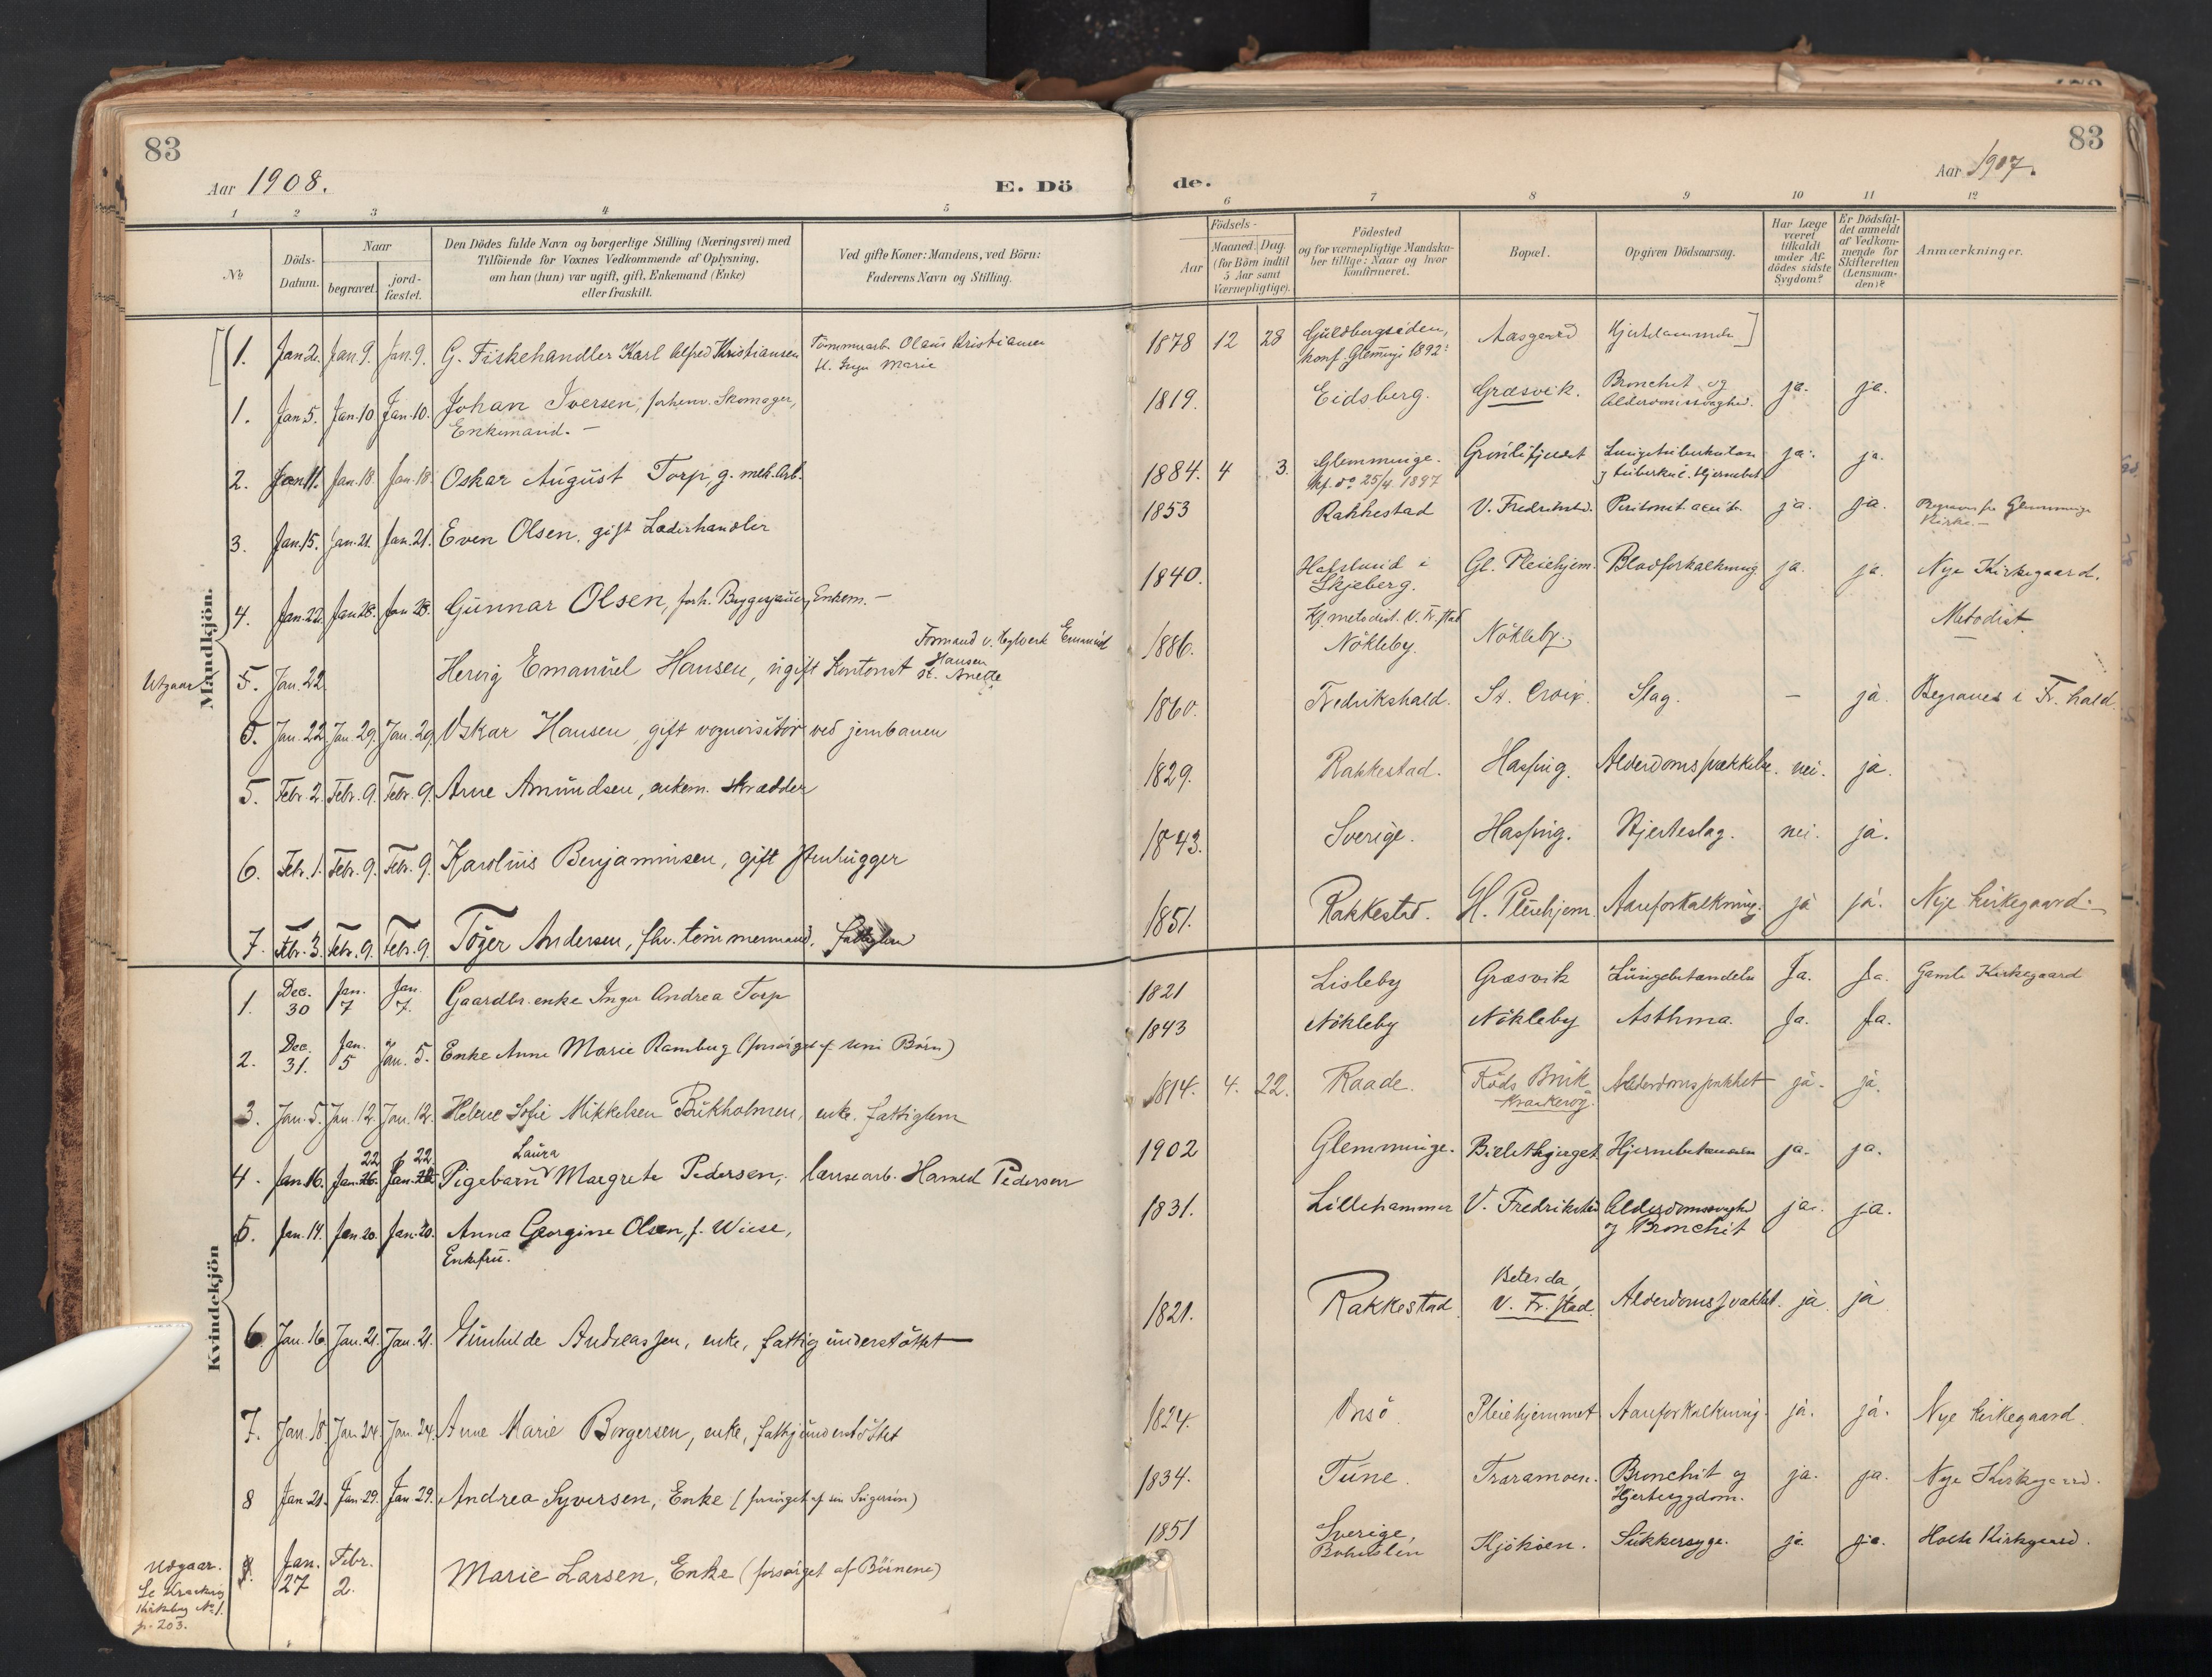 83
Aar 1908.
E. Dö
1 2 3 4 5
No
Döds-
Datum.
Naar
begravet.
jord-
fæstet.
Den Dödes fulde Navn og borgerlige Stilling (Næringsvei) med
Tilföiende for Voxnes Vedkommende af Oplysning,
om han (hun) var ugift, gift, Enkemand (Enke)
eller fraskilt.
Ved gifte Koner: Mandens, ved Börn:
Faderens Navn og Stilling.
Mandkjön.
[1. Jan 2. Jan 9. Jan. 9. G. Fiskehandler Karl Alfred Kristiansen Tömmerarb. Olaus Kristiansen
H. Inga Marie
1. Jan 5. Jan. 10 Jan. 10. Johan Iversen, forhenv. Skomager,
Enkemand. —
2. Jan 11. Jan. 18. Jan. 18. Oskar August Torp, g. mek. Arb.
3. Jan. 15. Jan. 21. Jan. 21. Even Olsen, gift Læderhandler
4. Jan. 22. Jan 28. Jan 28. Gunnar Olsen, forh. Enkem. —
Utgaar 5. Jan. 22 Emanuel Hansen, ugift Kontorist Formand v. Emanuel
Hansen
Anette
5. Jan. 22 Jan. 29. Jan. 29. Oskar Hansen, gift vognvisitör ved jernbanen
5. Febr. 2. Febr. 9. Febr. 9. Arne Amundsen, enkem. skrædder
6. Febr. 1. Febr. 9. Febr. 9. Karolius Benjaminsen, gift stenhugger
7. Febr. 3. Febr. 9. Febr. 9. Töger Andersen, fhv. tömmermand, fattiglem
Kvindekjön
1. Dec. 30 Jan. 7 Jan. 7. Gaardbr. enke Inger Andrea Torp
2. Dec. 31. Jan. 5 Jan. 5. Enke Anne Marie Ramberg (forsörget af sine Börn)
3. Jan. 5. Jan. 12. Jan. 12. Helene Sofie Mikkelsen enke. fattiglem
Laura
4. Jan 16. Jan. 22 Jan. 22 Pigebarn Margrete Pedersen, Harald Pedersen
5. Jan. 14. Jan 20. Jan. 20. Anna Georgine Olsen, f. Wiese,
Enkefru.
6. Jan. 16. Jan. 21. Jan. 21. Gunhilde Andreassen, enke, fattigunderstöttet
7. Jan. 18. Jan 24. Jan. 24. Anne Marie Borgersen, enke, fattigunderstöttet
8 Jan 21. Jan 29. Jan 29. Andrea Syversen, Enke (forsörget af sin Svigersön)
Udgaar.
Se Kraakerøy
Kirkebog No 1.
p. 203.
9. Jan. 27 Febr. 2. Marie Larsen, Enke (forsörget af Börnene)
83
de.
Aar 1907.
6 7 8 9 10 11 12
Födsels-
Aar
Maaned. Dag.
(for Börn indtil
5 Aar samt
Værnepligtige).
Födested
og for værnepligtige Mandska-
ber tillige: Naar og hvor
konfirmeret.
Bopæl.
Opgiven Dödsaarsag.
Har Læge
været
tilkaldt
under Af-
dödes sidste
Sygdom?
Er Dödsfal-
det anmeldt
af Vedkom-
mende for
Skifteretten
(Lensman-
den)?
Anmærkninger.
1878 12 28 Guldbergsiden, Aasgaard Hjertelammelse]
konf. Glemminge 1892.
1819. Eidsberg. Græsvik. Bronchit og ja. ja.
Alderdomssvaghed.
1884. 4 3. Glemminge. Lungetuberkulose ja. ja.
kf. do 25/4 1897 og tuberkul. Hjernebet.
1853 Rakkestad V. Fredrikstad. Peritonit acuta ja. ja. Begravet fra Glemminge
Kirke. —
1840. Hafslund i Gl. Pleiehjem. Blodforkalkning ja. ja. Nye Kirkegaard.
Skjeberg.
Kf. metodist. V. Fr.stad
1886. Nökleby. Nökleby. Metodist
1860. Fredrikshald. St. Croix. Slag. — ja. Begraves i Fr. hald.
1829. Rakkestad. Hassing. Alderdomssvækkelse. nei. ja.
1843. Sverige. Hassing. Hjerteslag. nei. ja.
1851. Rakkestad. Gl. Pleiehjem. Aareforkalkning. ja ja. Nye kirkegaard. —
1821 Lisleby Græsvik Lungebetændelse Ja. Ja. Gamle Kirkegaard
1843 Nökleby Nökleby Asthma. Ja. Ja.
1814. 4. 22. Raade. Röds Bruk Alderdomssvakhet ja. ja.
Kraakeröy.
1902 Glemminge. Hjernebetændelse ja. ja.
1831. Lillehammer V. Fredrikstad Alderdomssvaghed ja. ja.
og Bronchit
1821. Rakkestad. Betesda, Alderdomssvakhet. ja. ja
V. Fr.stad
1824. Onsö. Pleiehjemmet Aareforkalkning. ja. ja. Nye kirkegaard.
1834. Tune. Traramoen. Bronchit og ja. ja. Nye Kirkegaard.
Hjertesygdom.
1851 Sverige, Kjököen. Sukkersyge. ja. ja. Kirkegaard.
Bohuslen